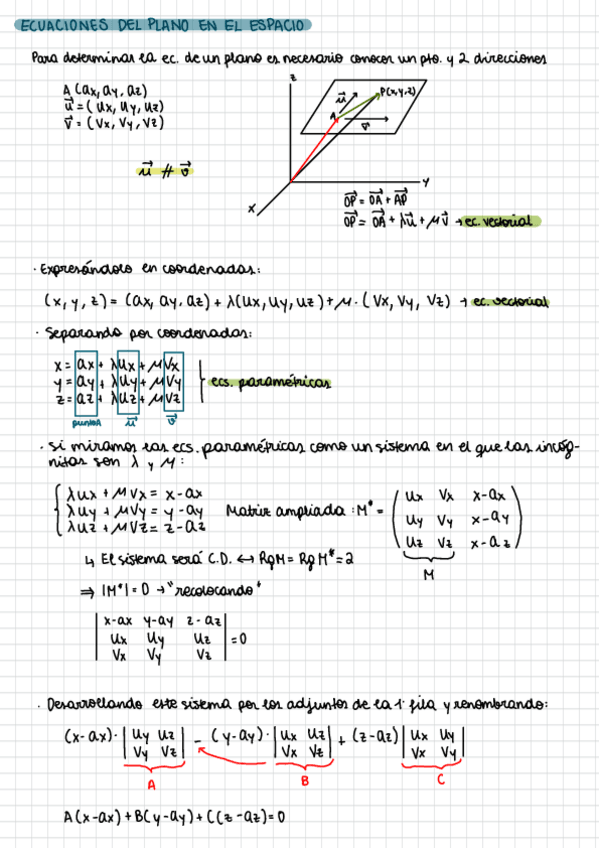 ECUACIONES DEL PLANO EN EL ESPACIO
Para determinar la ec. de un plano es necesario conocer un pto. y 2 direcciones
A (ax, ay, az)
u⃗ = (ux, uy, uz)
v⃗ = (vx, vy, vz)
u⃗ ∦ v⃗
z
P(x,y,z)
u⃗
A
v⃗
y
x
OP⃗ = OA⃗ + AP⃗
OP⃗ = OA⃗ + λu⃗ + μv⃗ → ec. vectorial
· Expresándolo en coordenadas:
(x, y, z) = (ax, ay, az) + λ(ux, uy, uz) + μ · (vx, vy, vz) → ec. vectorial
· Separando por coordenadas:
x = ax + λux + μvx
y = ay + λuy + μvy
z = az + λuz + μvz
ecs. paramétricas
punto A u⃗ v⃗
· Si miramos las ecs. paramétricas como un sistema en el que las incóg-
nitas son λ y μ:
λux + μvx = x - ax
λuy + μvy = y - ay
λuz + μvz = z - az
Matriz ampliada: M* =
ux vx x-ax
uy vy x-ay
uz vz x-az
M
↳ El sistema será C.D. ↔ RgM = RgM* = 2
⇒ |M*| = 0 → "recolocando"
x-ax y-ay z-az
ux uy uz = 0
vx vy vz
· Desarrollando este sistema por los adjuntos de la 1ª fila y renombrando:
(x-ax) · |uy uz| - (y-ay) · |ux uz| + (z-az) |ux uy|
|vy vz| |vx vz| |vx vy|
A B C
A(x-ax) + B(y-ay) + C(z-az) = 0